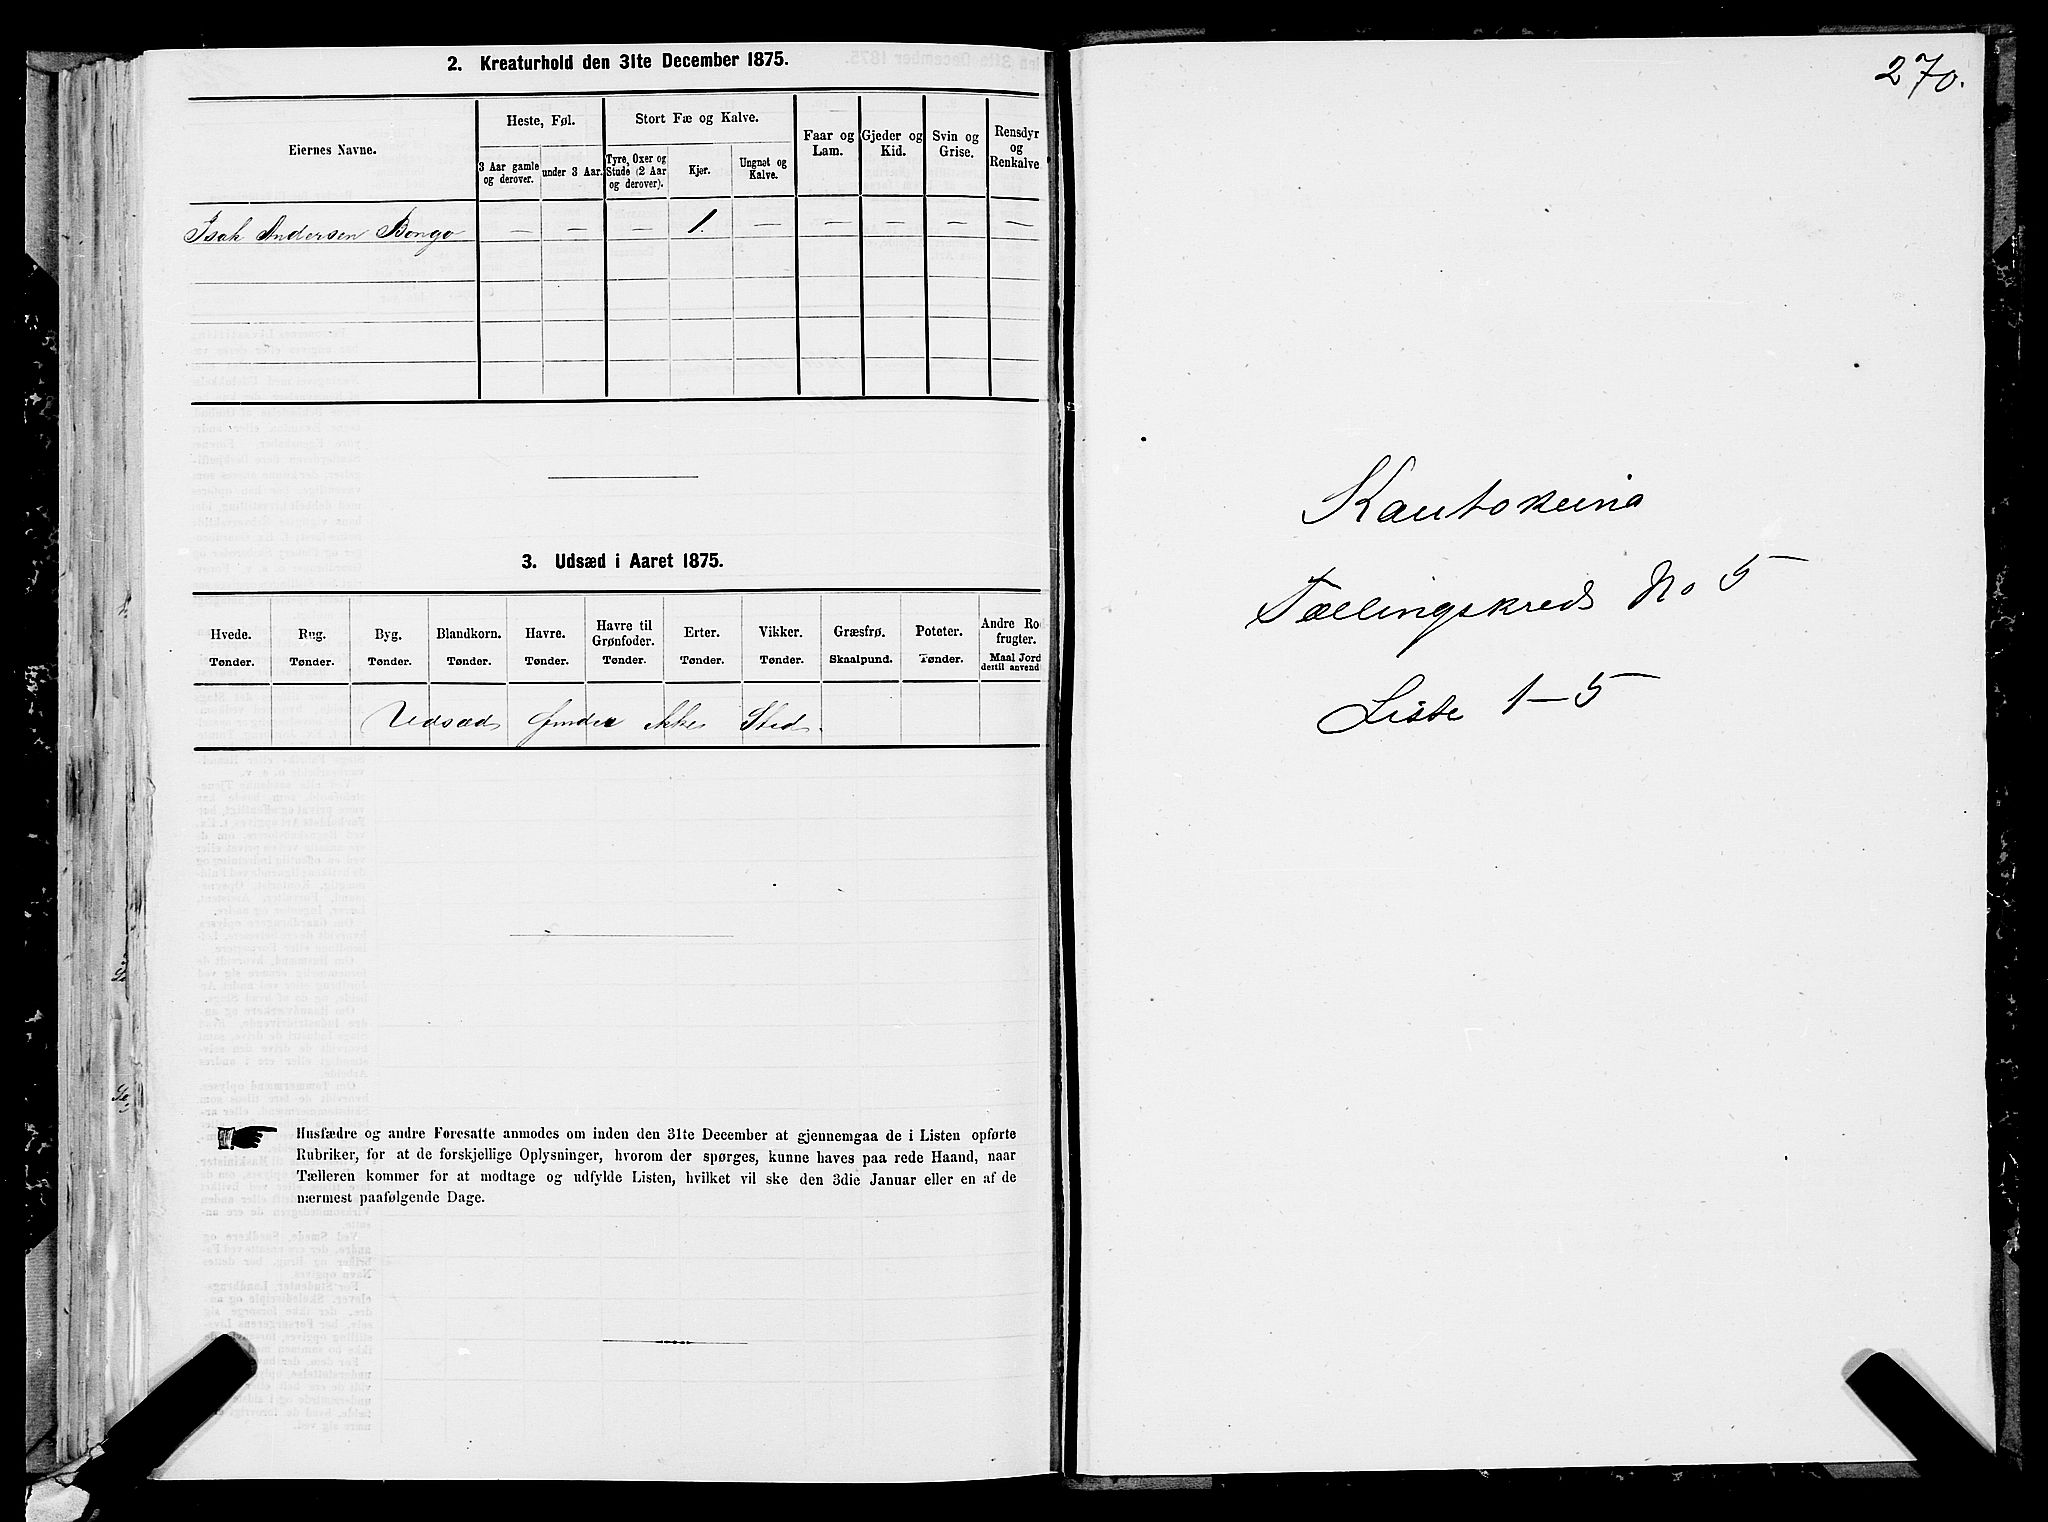 2. Kreaturhold den 31te December 1875.
Eiernes Navne.
Heste, Føl.
Stort Fæ og Kalve.
3 Aar gamle og derover.
under 3 Aar.
Tyre, Oxer og Stude (2 Aar og derover).
Kjør.
Ungnøt og Kalve.
Faar og Lam.
Gjeder og Kid.
Svin og Grise.
Rensdyr og Renkalve
Isak Andersen Bongo — — — 1. — — — — —
3. Udsæd i Aaret 1875.
Hvede. Rug. Byg. Blandkorn. Havre. Havre til Grønfoder. Erter. Vikker. Græsfrø. Poteter. Andre Ro frugter.
Tønder. Tønder. Tønder. Tønder. Tønder. Tønder. Tønder. Tønder. Skaalpund. Tønder. Maal Jord dertil anvend
Udsæd finder ikke Sted.
Husfædre og andre Foresatte anmodes om inden den 31te December at gjennemgaa de i Listen opførte
Rubriker, for at de forskjellige Oplysninger, hvorom der spørges, kunne haves paa rede Haand, naar
Tælleren kommer for at modtage og udfylde Listen, hvilket vil ske den 3die Januar eller en af de
nærmest paafølgende Dage.
270.
Kautokeino
Tællingskreds No 5
Liste 1–5